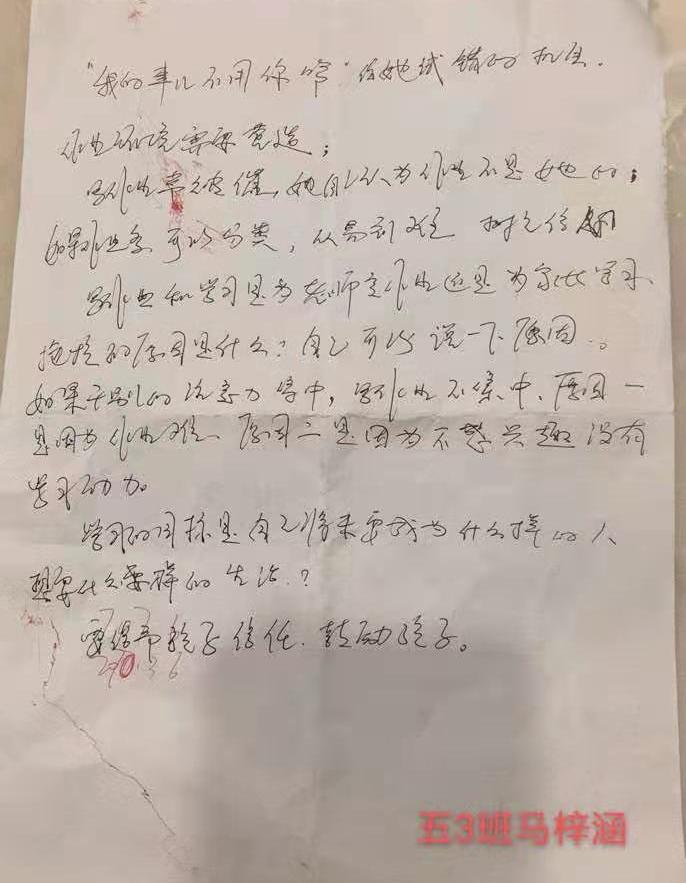 “我的事儿不用你管”给她试错的机会.
作业环境需要营造;
写作业常被催,她自认为作业不是她的;
如果作业多可以分类,从易到难 树立信
写作业和学习是为老师写作业还是为家长学习、
拖拉的原因是什么?自己可以说一下原因。
如果干别的注意力集中,写作业不集中、原因一
是因为作业难、原因二是因为不感兴趣没有
学习动力。
学习的目标是自己将来要成为什么样的人、
想要什么样的生活.?
要给予孩子信任.鼓励孩子。
五3班马梓涵